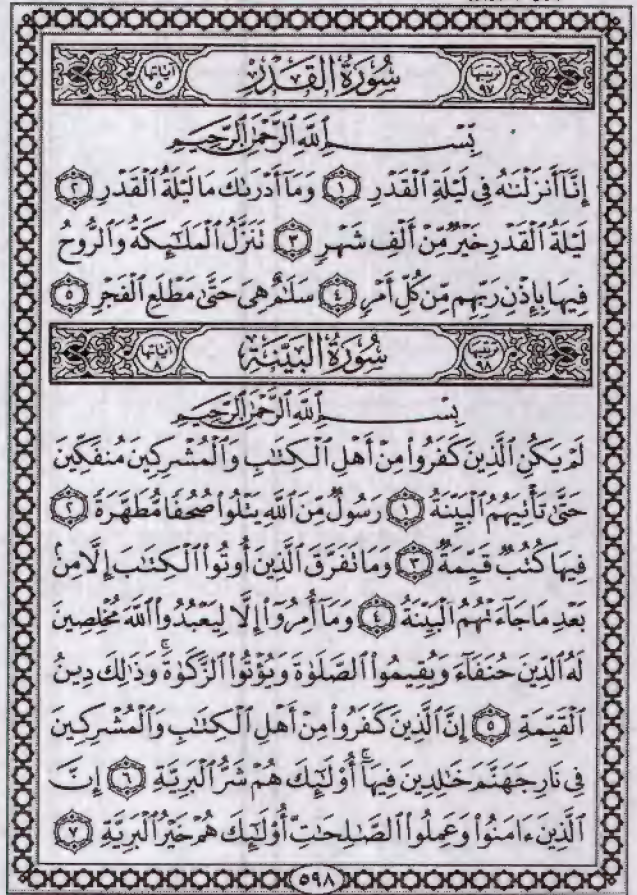 ترتيبها ٩٧ سُورَةُ القَدْرِ آياتها ٥
بِسْمِ ٱللَّهِ ٱلرَّحْمَٰنِ ٱلرَّحِيمِ
إِنَّآ أَنزَلْنَٰهُ فِى لَيْلَةِ ٱلْقَدْرِ ١ وَمَآ أَدْرَىٰكَ مَا لَيْلَةُ ٱلْقَدْرِ ٢
لَيْلَةُ ٱلْقَدْرِ خَيْرٌ مِّنْ أَلْفِ شَهْرٍ ٣ تَنَزَّلُ ٱلْمَلَٰٓئِكَةُ وَٱلرُّوحُ
فِيهَا بِإِذْنِ رَبِّهِم مِّن كُلِّ أَمْرٍ ٤ سَلَٰمٌ هِىَ حَتَّىٰ مَطْلَعِ ٱلْفَجْرِ ٥
ترتيبها ٩٨ سُورَةُ البَيِّنَةِ آياتها ٨
بِسْمِ ٱللَّهِ ٱلرَّحْمَٰنِ ٱلرَّحِيمِ
لَمْ يَكُنِ ٱلَّذِينَ كَفَرُوا۟ مِنْ أَهْلِ ٱلْكِتَٰبِ وَٱلْمُشْرِكِينَ مُنفَكِّينَ
حَتَّىٰ تَأْتِيَهُمُ ٱلْبَيِّنَةُ ١ رَسُولٌ مِّنَ ٱللَّهِ يَتْلُوا۟ صُحُفًا مُّطَهَّرَةً ٢
فِيهَا كُتُبٌ قَيِّمَةٌ ٣ وَمَا تَفَرَّقَ ٱلَّذِينَ أُوتُوا۟ ٱلْكِتَٰبَ إِلَّا مِنۢ
بَعْدِ مَا جَآءَتْهُمُ ٱلْبَيِّنَةُ ٤ وَمَآ أُمِرُوٓا۟ إِلَّا لِيَعْبُدُوا۟ ٱللَّهَ مُخْلِصِينَ
لَهُ ٱلدِّينَ حُنَفَآءَ وَيُقِيمُوا۟ ٱلصَّلَوٰةَ وَيُؤْتُوا۟ ٱلزَّكَوٰةَ ۚ وَذَٰلِكَ دِينُ
ٱلْقَيِّمَةِ ٥ إِنَّ ٱلَّذِينَ كَفَرُوا۟ مِنْ أَهْلِ ٱلْكِتَٰبِ وَٱلْمُشْرِكِينَ
فِى نَارِ جَهَنَّمَ خَٰلِدِينَ فِيهَآ ۚ أُو۟لَٰٓئِكَ هُمْ شَرُّ ٱلْبَرِيَّةِ ٦ إِنَّ
ٱلَّذِينَ ءَامَنُوا۟ وَعَمِلُوا۟ ٱلصَّٰلِحَٰتِ أُو۟لَٰٓئِكَ هُمْ خَيْرُ ٱلْبَرِيَّةِ ٧
٥٩٨